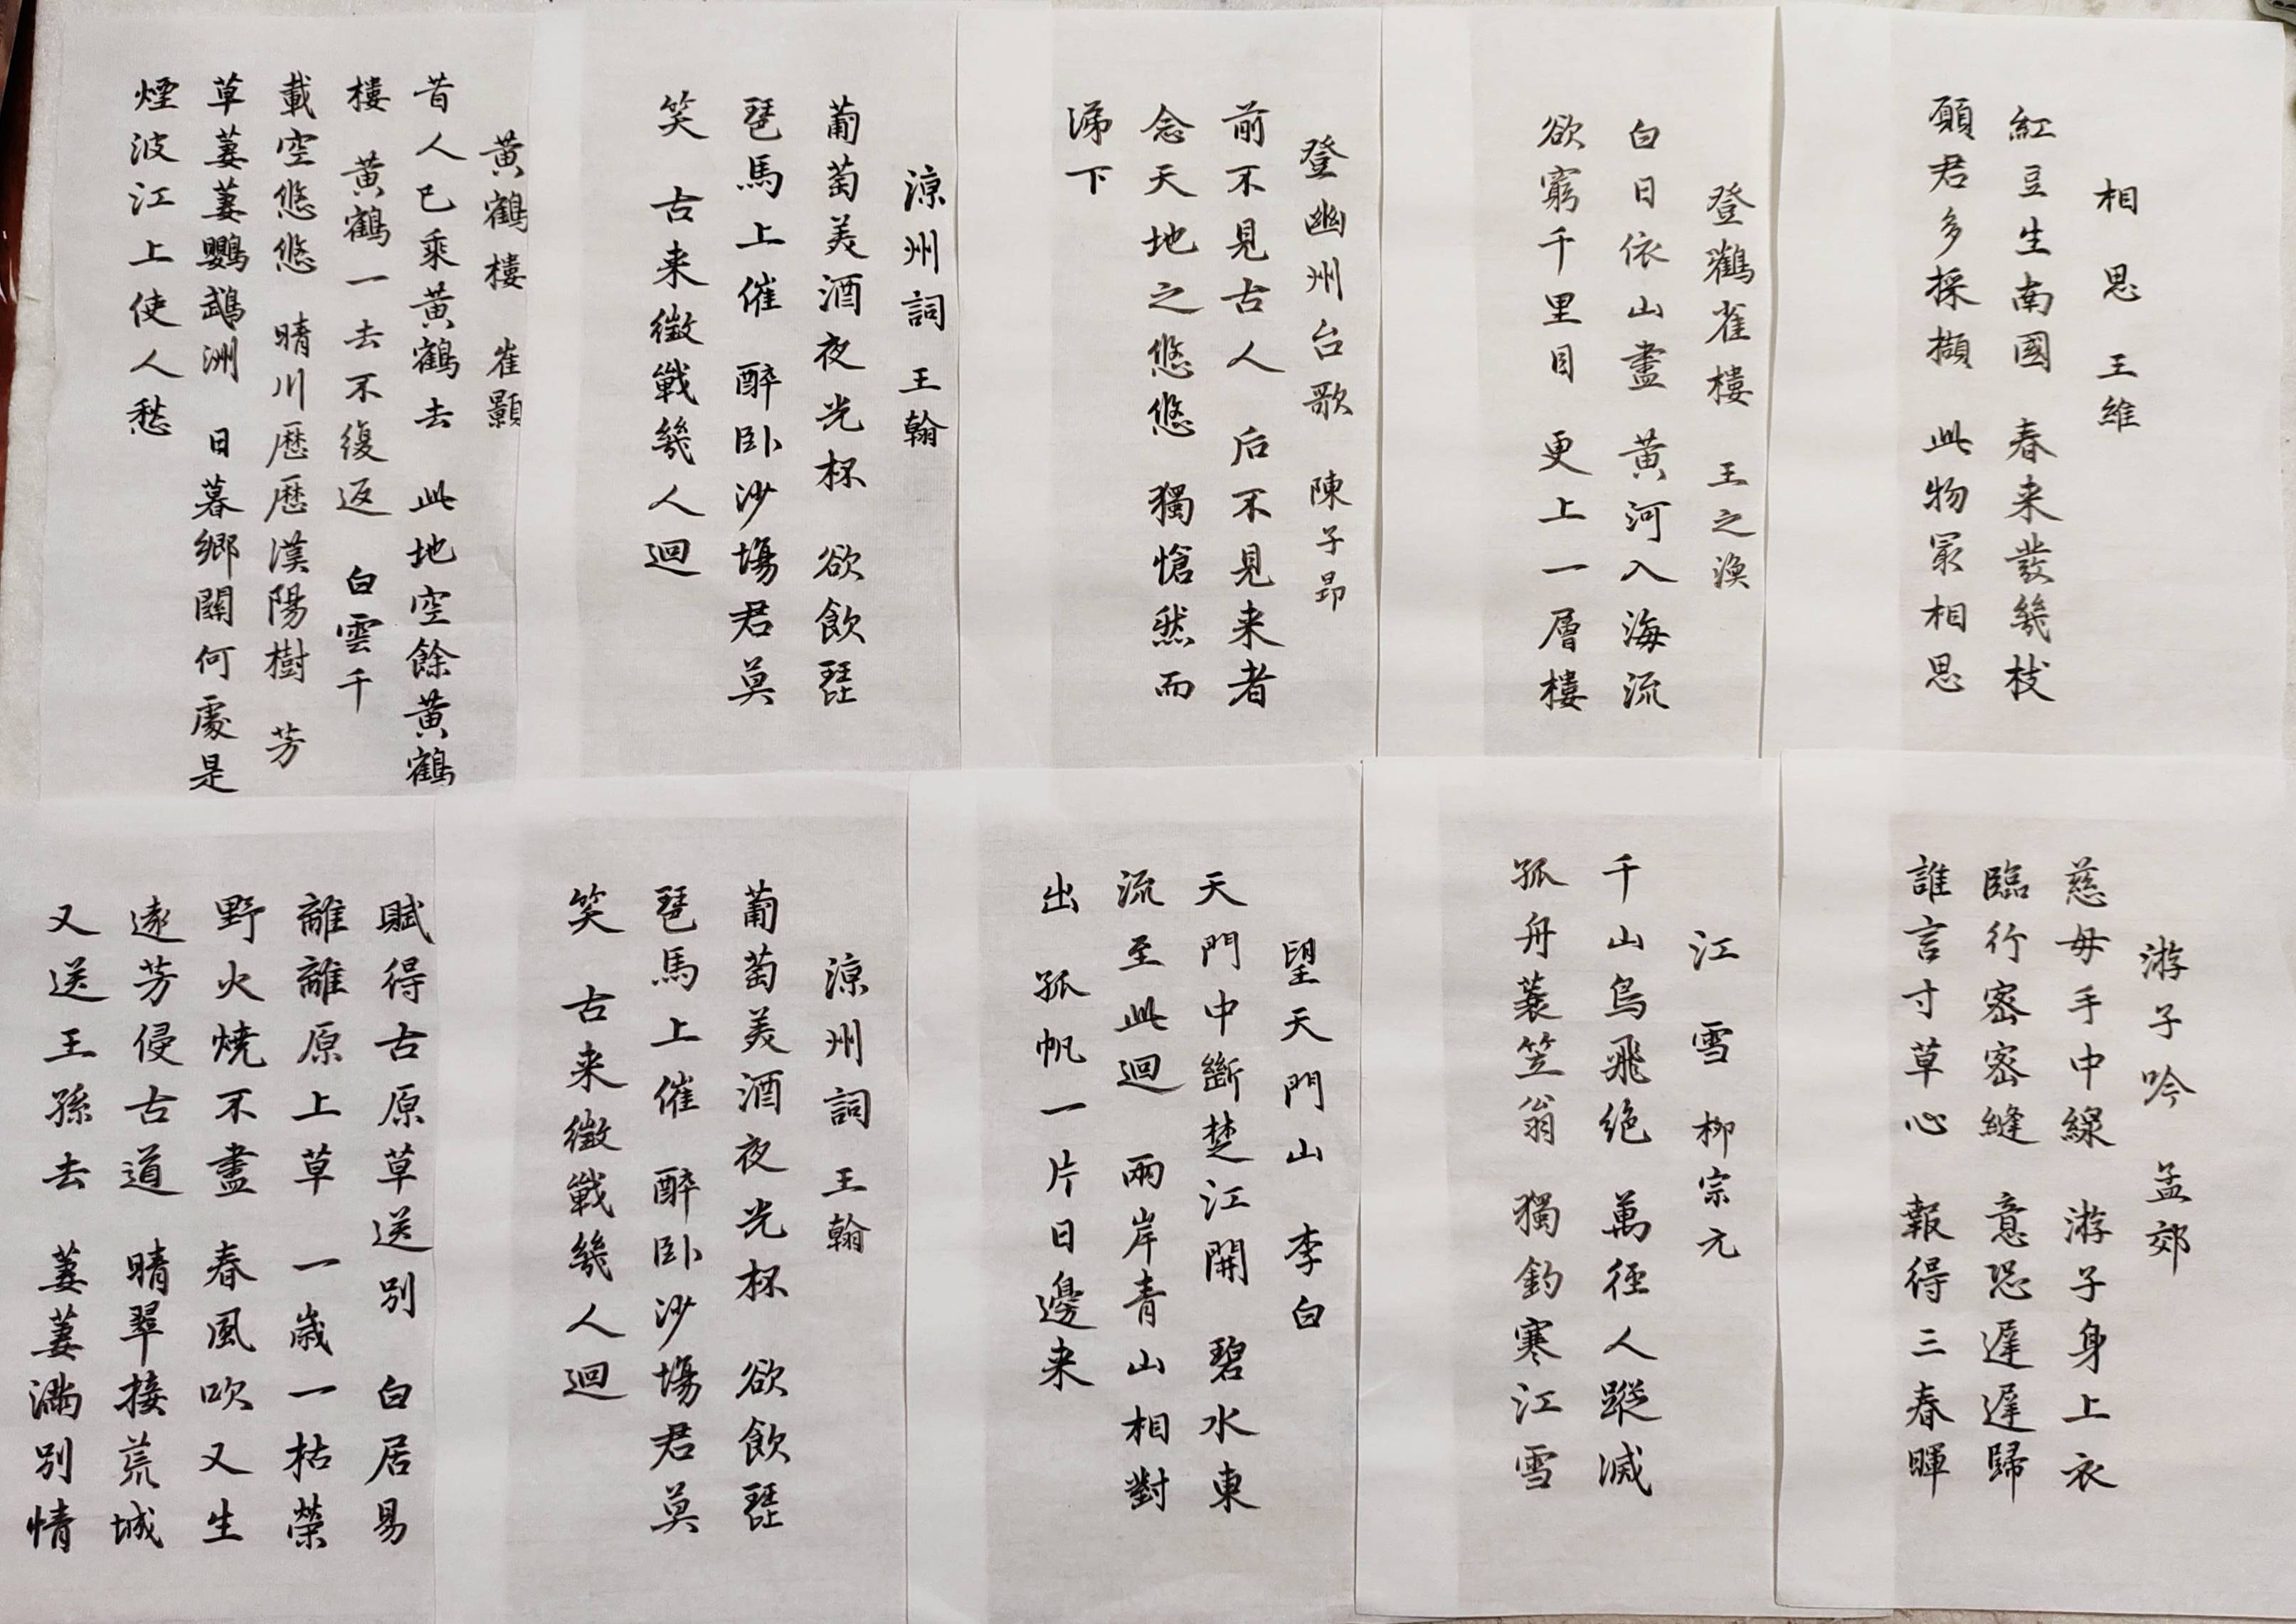 相思 王維
紅豆生南國 春来發幾枝
願君多採擷 此物最相思
登鸛雀樓 王之渙
白日依山盡 黃河入海流
欲窮千里目 更上一層樓
登幽州台歌 陳子昂
前不見古人 后不見来者
念天地之悠悠 獨愴然而
涕下
涼州詞 王翰
葡萄美酒夜光杯 欲飲琵
琶馬上催 醉卧沙場君莫
笑 古来徵戰幾人迴
黃鶴樓 崔顥
昔人已乘黃鶴去 此地空餘黃鶴
樓 黃鶴一去不復返 白雲千
載空悠悠 晴川歷歷漢陽樹 芳
草萋萋鸚鵡洲 日暮鄉關何處是
煙波江上使人愁
游子吟 孟郊
慈母手中線 游子身上衣
臨行密密縫 意恐遲遲歸
誰言寸草心 報得三春暉
江雪 柳宗元
千山鸟飛絕 萬徑人蹤滅
孤舟蓑笠翁 獨釣寒江雪
望天門山 李白
天門中斷楚江開 碧水東
流至此迴 兩岸青山相對
出 孤帆一片日邊来
涼州詞 王翰
葡萄美酒夜光杯 欲飲琵
琶馬上催 醉卧沙場君莫
笑 古来徵戰幾人迴
賦得古原草送别 白居易
離離原上草 一歲一枯榮
野火燒不盡 春風吹又生
遠芳侵古道 晴翠接荒城
又送王孫去 萋萋滿别情